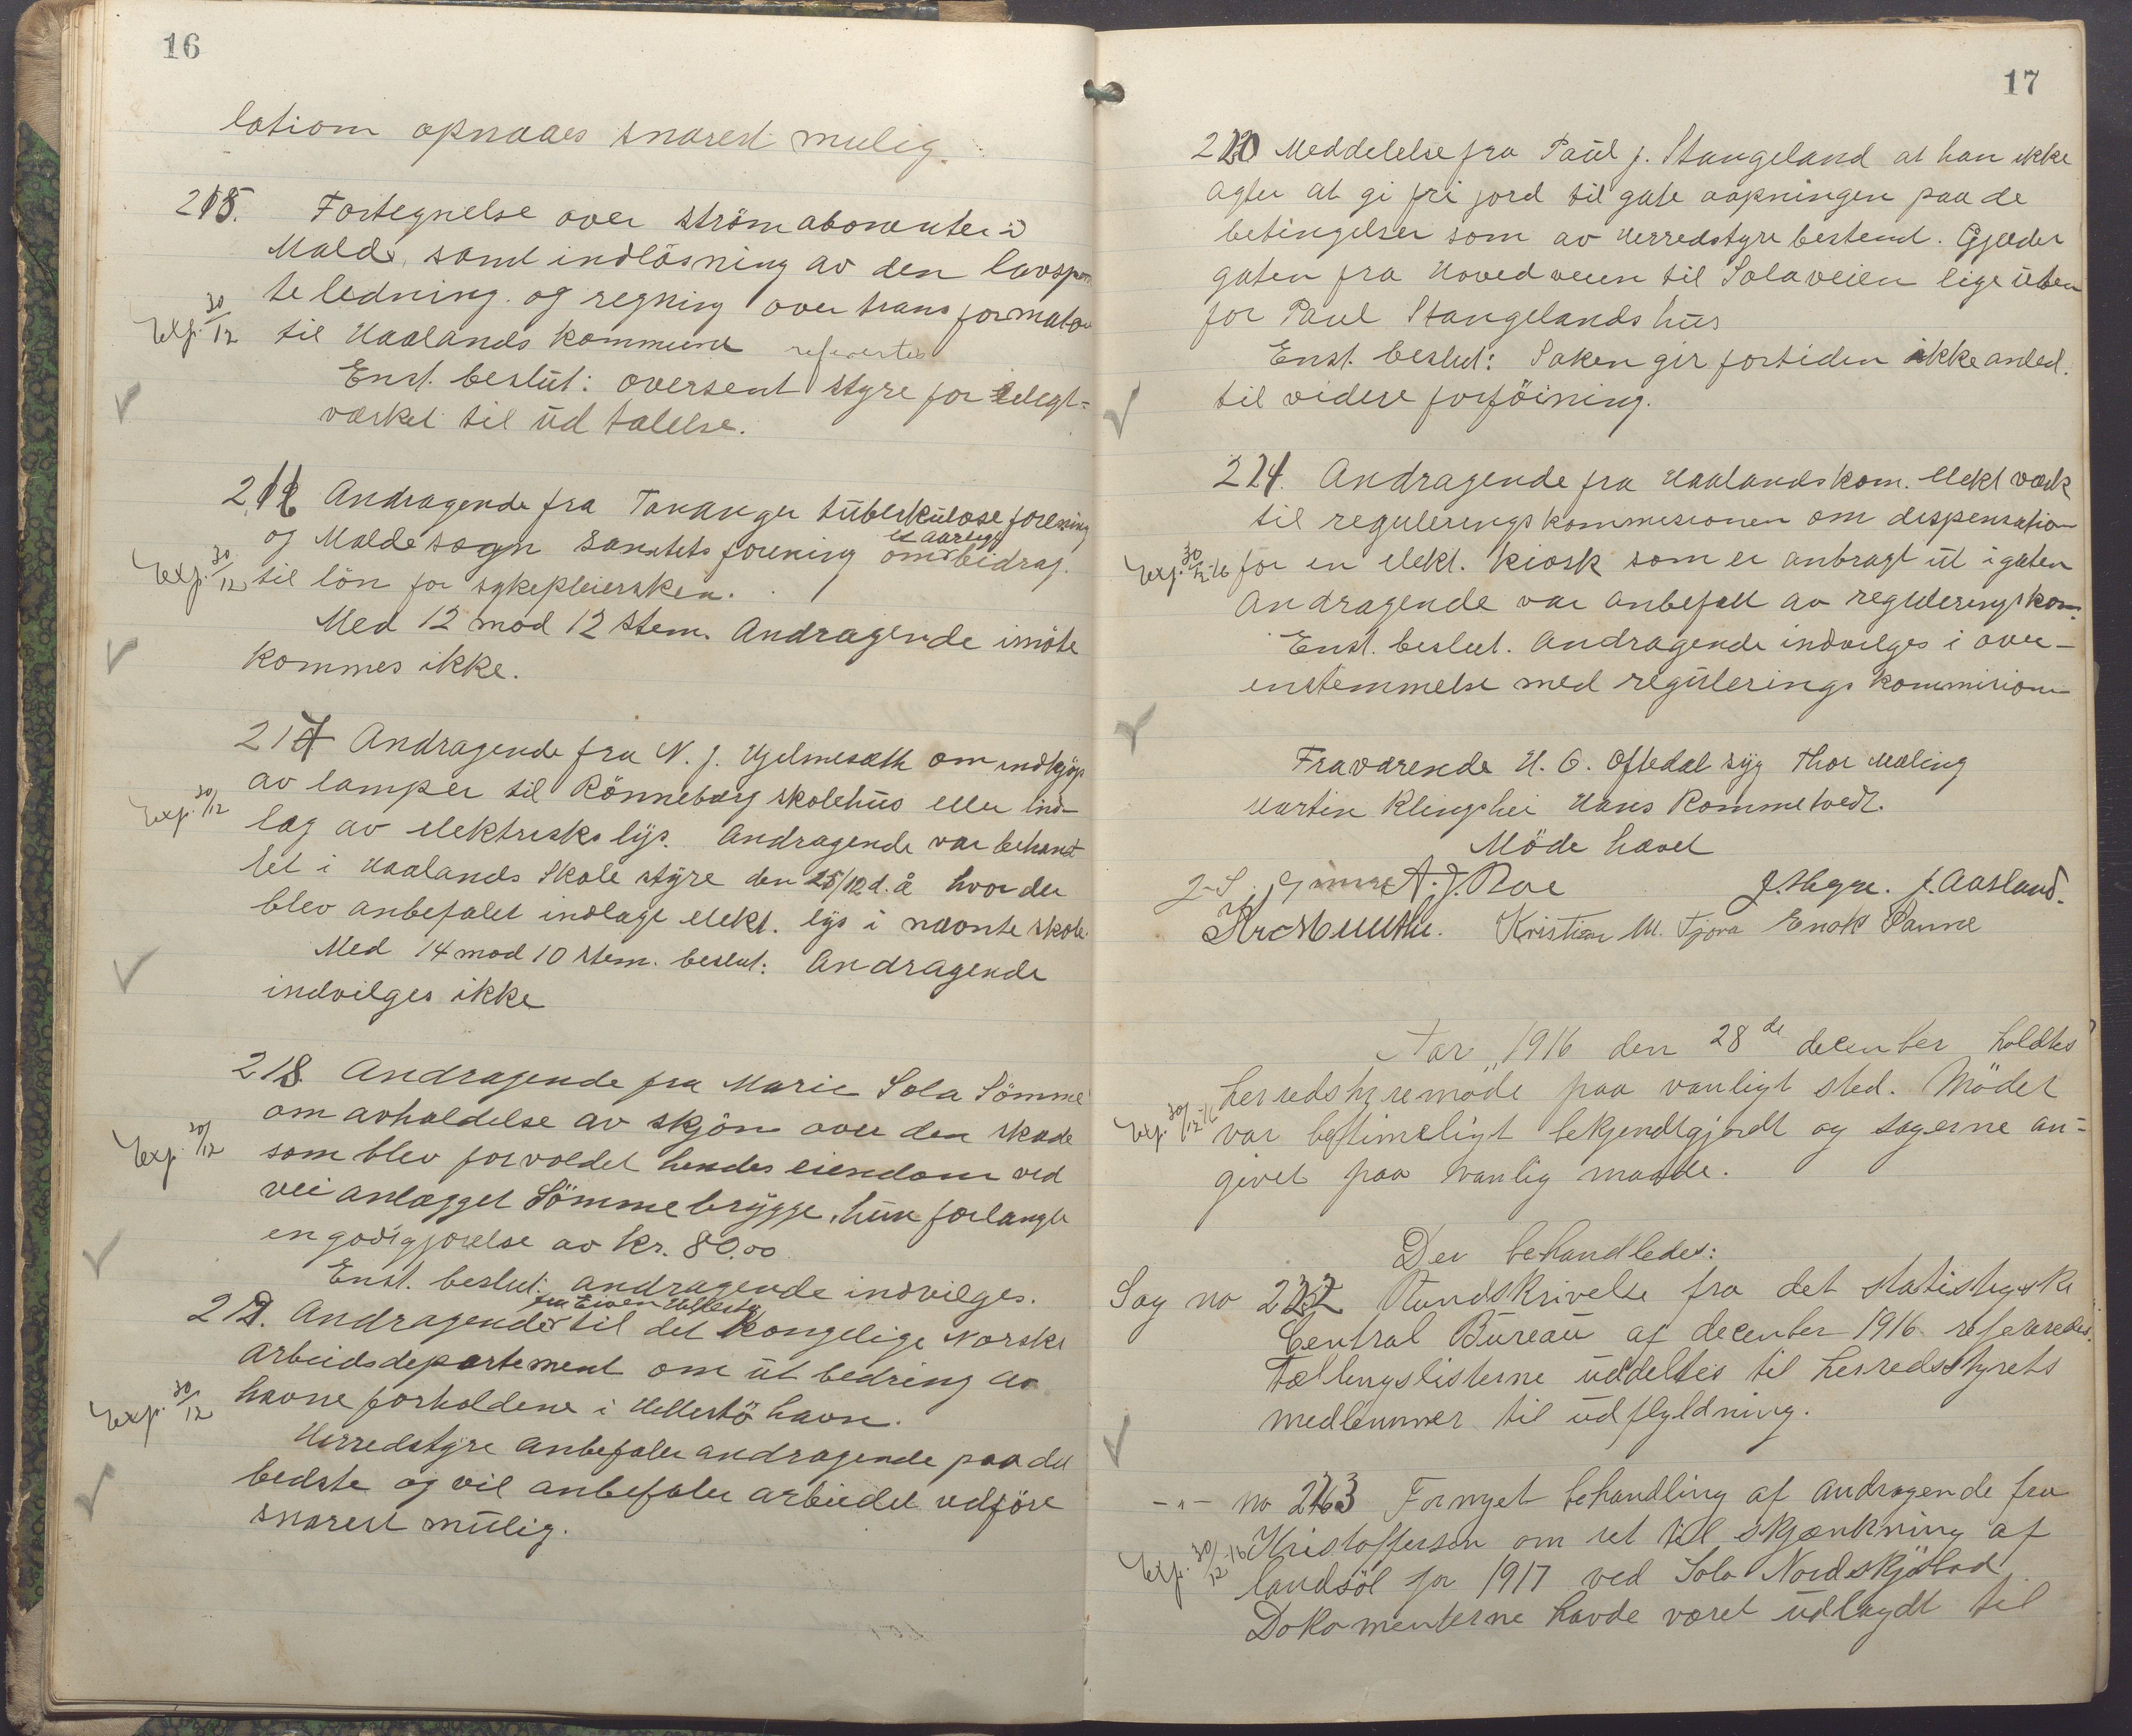 16
lation opnaaes snarest mulig.
215. Fortegnelse over strömabonenter i
Malde, samt indlösning av den lavspen
te ledning og regning over transformator
Exp. 30/12
til Haalands kommune refertes
Enst. beslut: oversent styre for elegt-
værket til üd talelse.
216 Andragende fra Tananger tüberkülose forening
og Malde sogn sanitets forening om et aarligt bidrag
Exp. 30/12
til lön for sykepleiersken.
Med 12 mod 12 stem. Andragende imöte
kommes ikke.
217 Andragende fra N. J. Hjelmesæth om indkjöp
av lamper til Rönneberg skolehüs eller ind-
Exp. 30/12
lag av elektrisks lys. Andragende var behand
let i Haalands Skole styre den 25/12 d. å hvor der
blev anbefalet indlagt elekt. lys i nævnte skole.
Med 14 mod 10 stem. beslut: Andragende
indvilges ikke
218. Andragende fra Marie Sola Sömme
om avholdelse av skjön over den skade
Exp. 30/12
som blev forvoldet hendes eiendom ved
vei anlægget Sömmebrygge, hün forlangte
en godtgjörelse av kr. 80.00
Enst. beslut: andragende indvilges.
219. Andragende fra Eivin Hellestö til det kongelige Norske
Arbeidsdepartement om üt bedring av
Exp. 30/12
havne forholdene i Hellestö havn.
Herredstyre anbefaler andragende paa det
bedste og vil anbefaler arbeidet udföre
snarest mülig.
17
220 Meddelelse fra Paül J. Stangeland at han ikke
agter at gi fri jord til gate aapningen paa de
betingelser som av Herredstyre bestemt. Gjælder
gaten fra Hovedveien til Solaveien lige üten
for Paul Stangelands hüs
Enst. beslut: Saken gir fortiden ikke anled.
til videre forföining.
221. Andragende fra Haalands kom. elekt værk
til regulerings kommisionen om dispensation
Exp. 30/12-16
for en elekt. kiosk som er anbragt üt i gaten
Andragende var anbefalt av reguleringskom.
Enst. beslut. Andragende indvilges i over-
enstemmelse med regülerings kommision
Fraværende H. O. Oftedal syg Thor Meling
Martin Klingshei Hans Rommetvedt.
Möde hævet
A. J. Roe J. Hegre. J. Aasland.
Kristian M. Tjora Enok Sanne
Aar 1916 den 28de december holdtes
herredstyremöde paa vanligt sted. Mödet
Exp. 30/12-16
var betimeligt bekjendtgjordt og sagerne an-
givet paa vanlig maade.
Der behandledes:
Sag no 222 Rundskrivelse fra det statistiske
Central Büreaü af december 1916 refereredes.
Tællingslisterne üddeltes til herredsstyrets
medlemmer til üdfyldning.
-"- no 223 Fornyet behandling af andragende fra
Exp. 30/12-16
Kristoffersen om ret til skjænkning af
landsöl for 1917 ved Sola Nordsjöbad
Dokomenterne havde været üdlagdt til